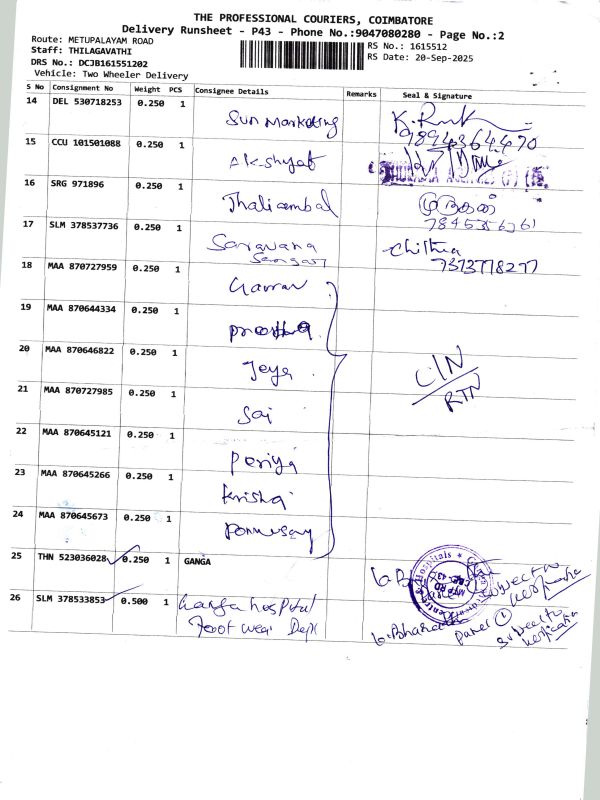 THE PROFESSIONAL COURIERS, COIMBATORE
Delivery Runsheet - P43 - Phone No.:9047080280 - Page No.:2
Route: METUPALAYAM ROAD
Staff: THILAGAVATHI
DRS No.: DCJB161551202
Vehicle: Two Wheeler Delivery
RS No.: 1615512
RS Date: 20-Sep-2025
S No Consignment No Weight PCS Consignee Details Remarks Seal & Signature
14 DEL 530718253 0.250 1 Sun Marketing
9894364470
15 CCU 101501088 0.250 1 Akshyat
16 SRG 971896 0.250 1 Thaliambal
17 SLM 378537736 0.250 1 Saravana Chithra
7373778277
18 MAA 870727959 0.250 1
19 MAA 870644334 0.250 1
20 MAA 870646822 0.250 1 Jeya
C/N
RTN
21 MAA 870727985 0.250 1 Sai
22 MAA 870645121 0.250 1 Periya
23 MAA 870645266 0.250 1 Krisha
24 MAA 870645673 0.250 1 Ponnusamy
25 THN 523036028 0.250 1 GANGA
Subject to
26 SLM 378533853 0.500 1 Ganga hospital
Foot wear Dept
G. Bharath
Subject to